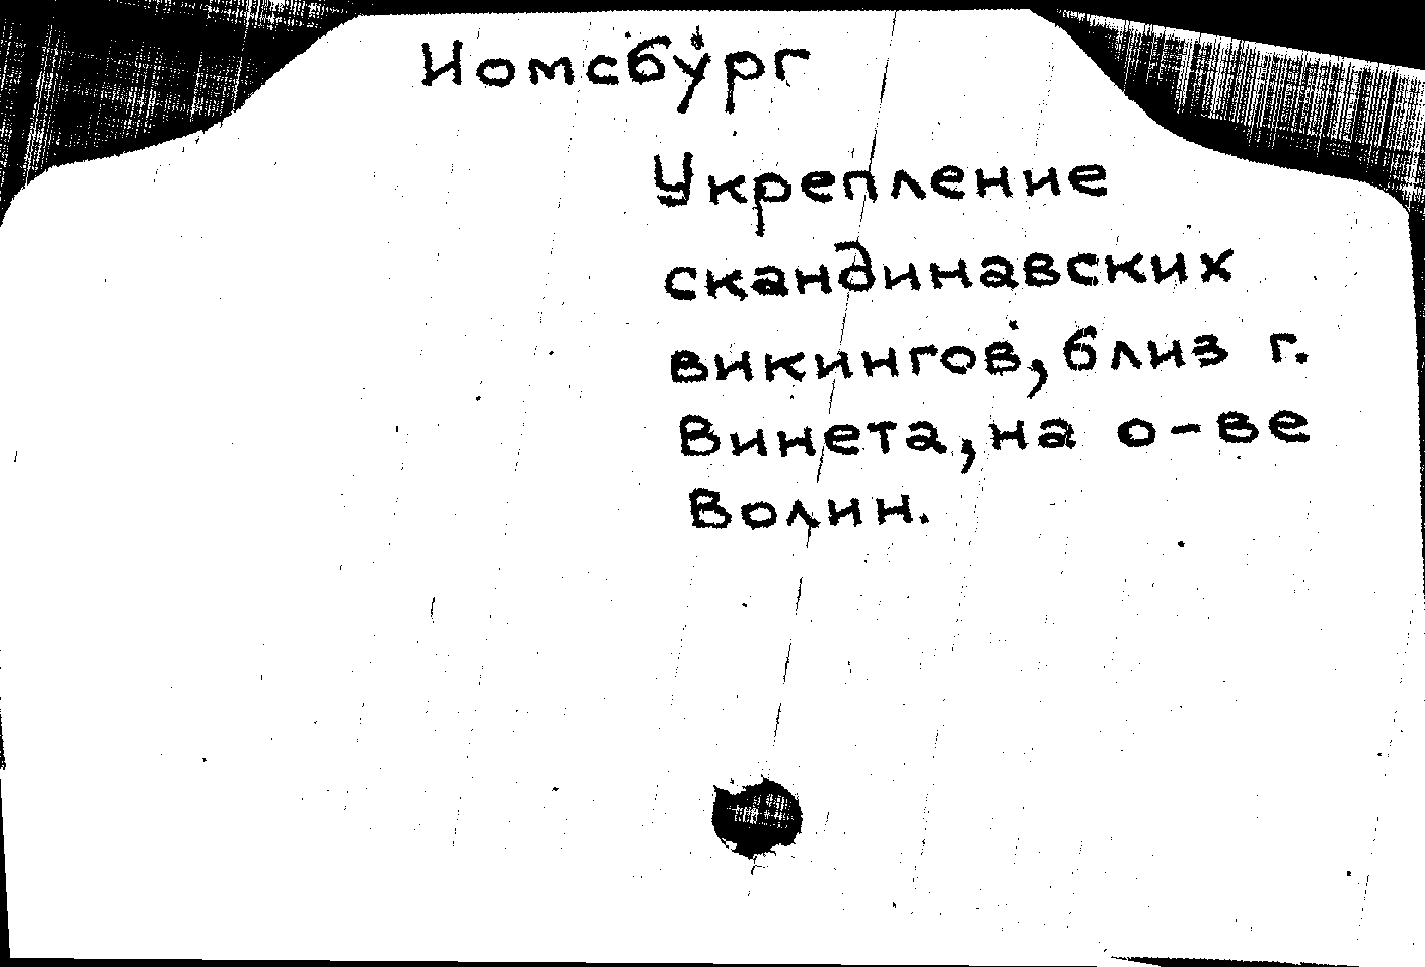 Иомсбург
Укрепление
скандинавских
викингов, близ г.
Винета, на о-ве
Волин.